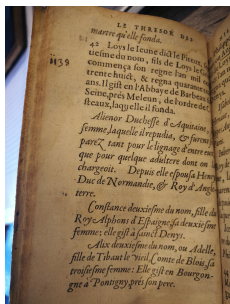 LE THRESOR DES
martre qu'elle fonda.
42 Loys le Ieune dict le Piteux,
uiesme du nom, fils de Loys le
1139
commença son regne l'an mil
trente huict, & regna quarante
ans. Il gist en l'Abbaye de Barbeau
Seine, pres Meleun, de l'ordre de
steaux, laquelle il fonda.
Alienor Duchesse d'Aquitaine,
femme, laquelle il repudia, & furent
parez tant pour le lignage d'entre eux
que pour quelque adultere dont on
chargeoit. Depuis elle espousa Henry
Duc de Normandie, & Roy d'Angle-
terre.
Constance deuxiesme du nom, fille du
Roy Alphons d'Espaigne, sa deuxiesme
femme: elle gist à sainct Denys.
Alix deuxiesme du nom, ou Adelle,
fille de Tibaut le vieil, Comte de Blois, sa
troisiesme femme: Elle gist en Bourgon-
gne à Pontigny, pres son pere.